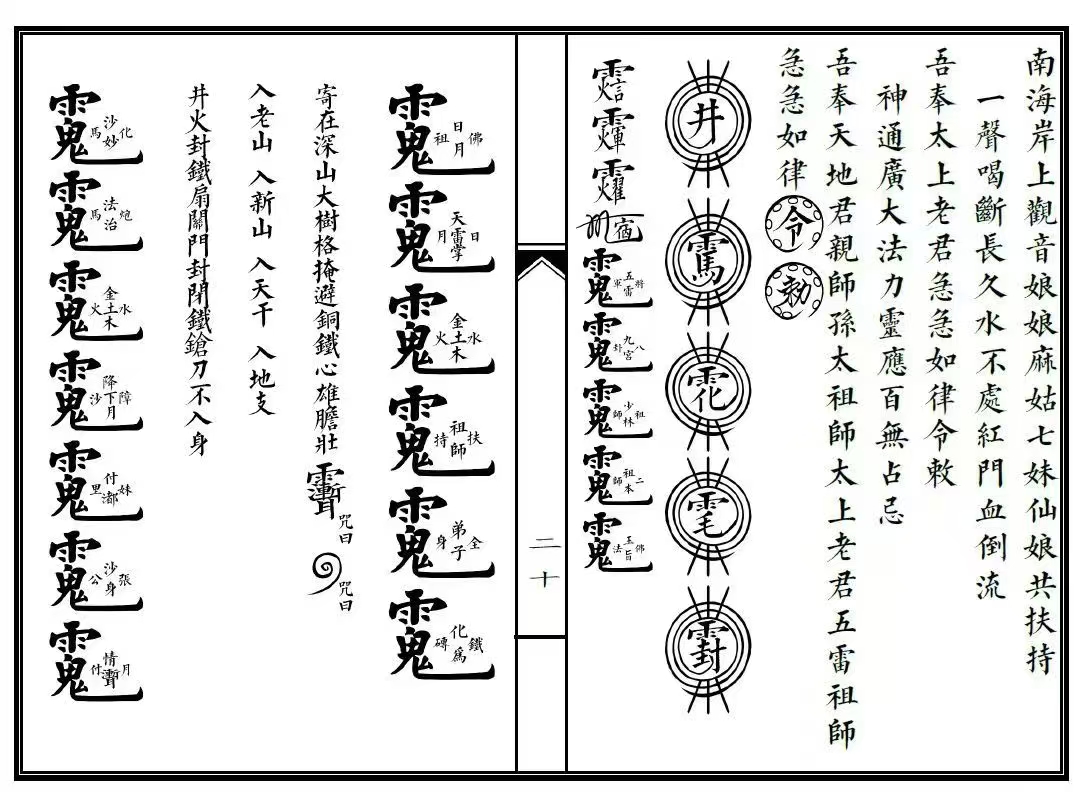 南海岸上觀音娘娘麻姑七妹仙娘共扶持
一聲喝斷長久水不處紅門血倒流
吾奉太上老君急急如律令敕
神通廣大法力靈應百無占忌
吾奉天地君親師孫太祖師太上老君五雷祖師
急急如律令勑
井
宿
五雷將軍
九宮八卦
少林祖師
祖本二師
玉旨佛法
二十
日月佛祖
天雷掌日月
金土木水火
祖師扶持
弟子全身
化為鐵磚
寄在深山大樹格掩避銅鐵心雄膽壯
咒曰
咒曰
入老山 入新山 入天干 入地支
井火封鐵扇關門封閉鐵鎗刀不入身
沙妙化馬
法治炮馬
金土木水火
降下月障沙
付妹里
沙身張公
情月付